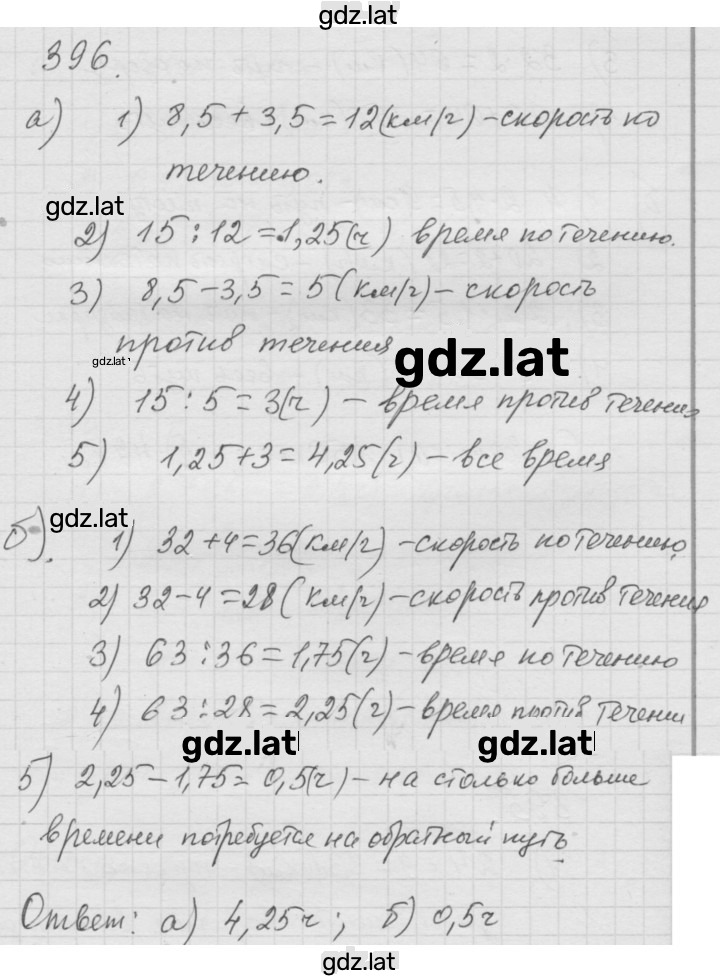 gdz.lat
396.
а) 1) 8,5 + 3,5 = 12 (км/г) - скорость по
течению.
gdz.lat
2) 15 : 12 = 1,25 (ч) время по течению.
3) 8,5 - 3,5 = 5 (км/г) - скорость
против течения
gdz.lat
gdz.lat
4) 15 : 5 = 3 (ч) - время против течения
5) 1,25 + 3 = 4,25 (г) - все время
gdz.lat
б). 1) 32 + 4 = 36 (км/г) - скорость по течению,
2) 32 - 4 = 28 (км/г) - скорость против течения
3) 63 : 36 = 1,75 (г) - время по течению
4) 63 : 28 = 2,25 (г) - время против течени
gdz.lat gdz.lat
5) 2,25 - 1,75 = 0,5 (ч) - на столько больше
времени потребуется на обратный путь.
Ответ: а) 4,25 ч ; б) 0,5 ч
gdz.lat